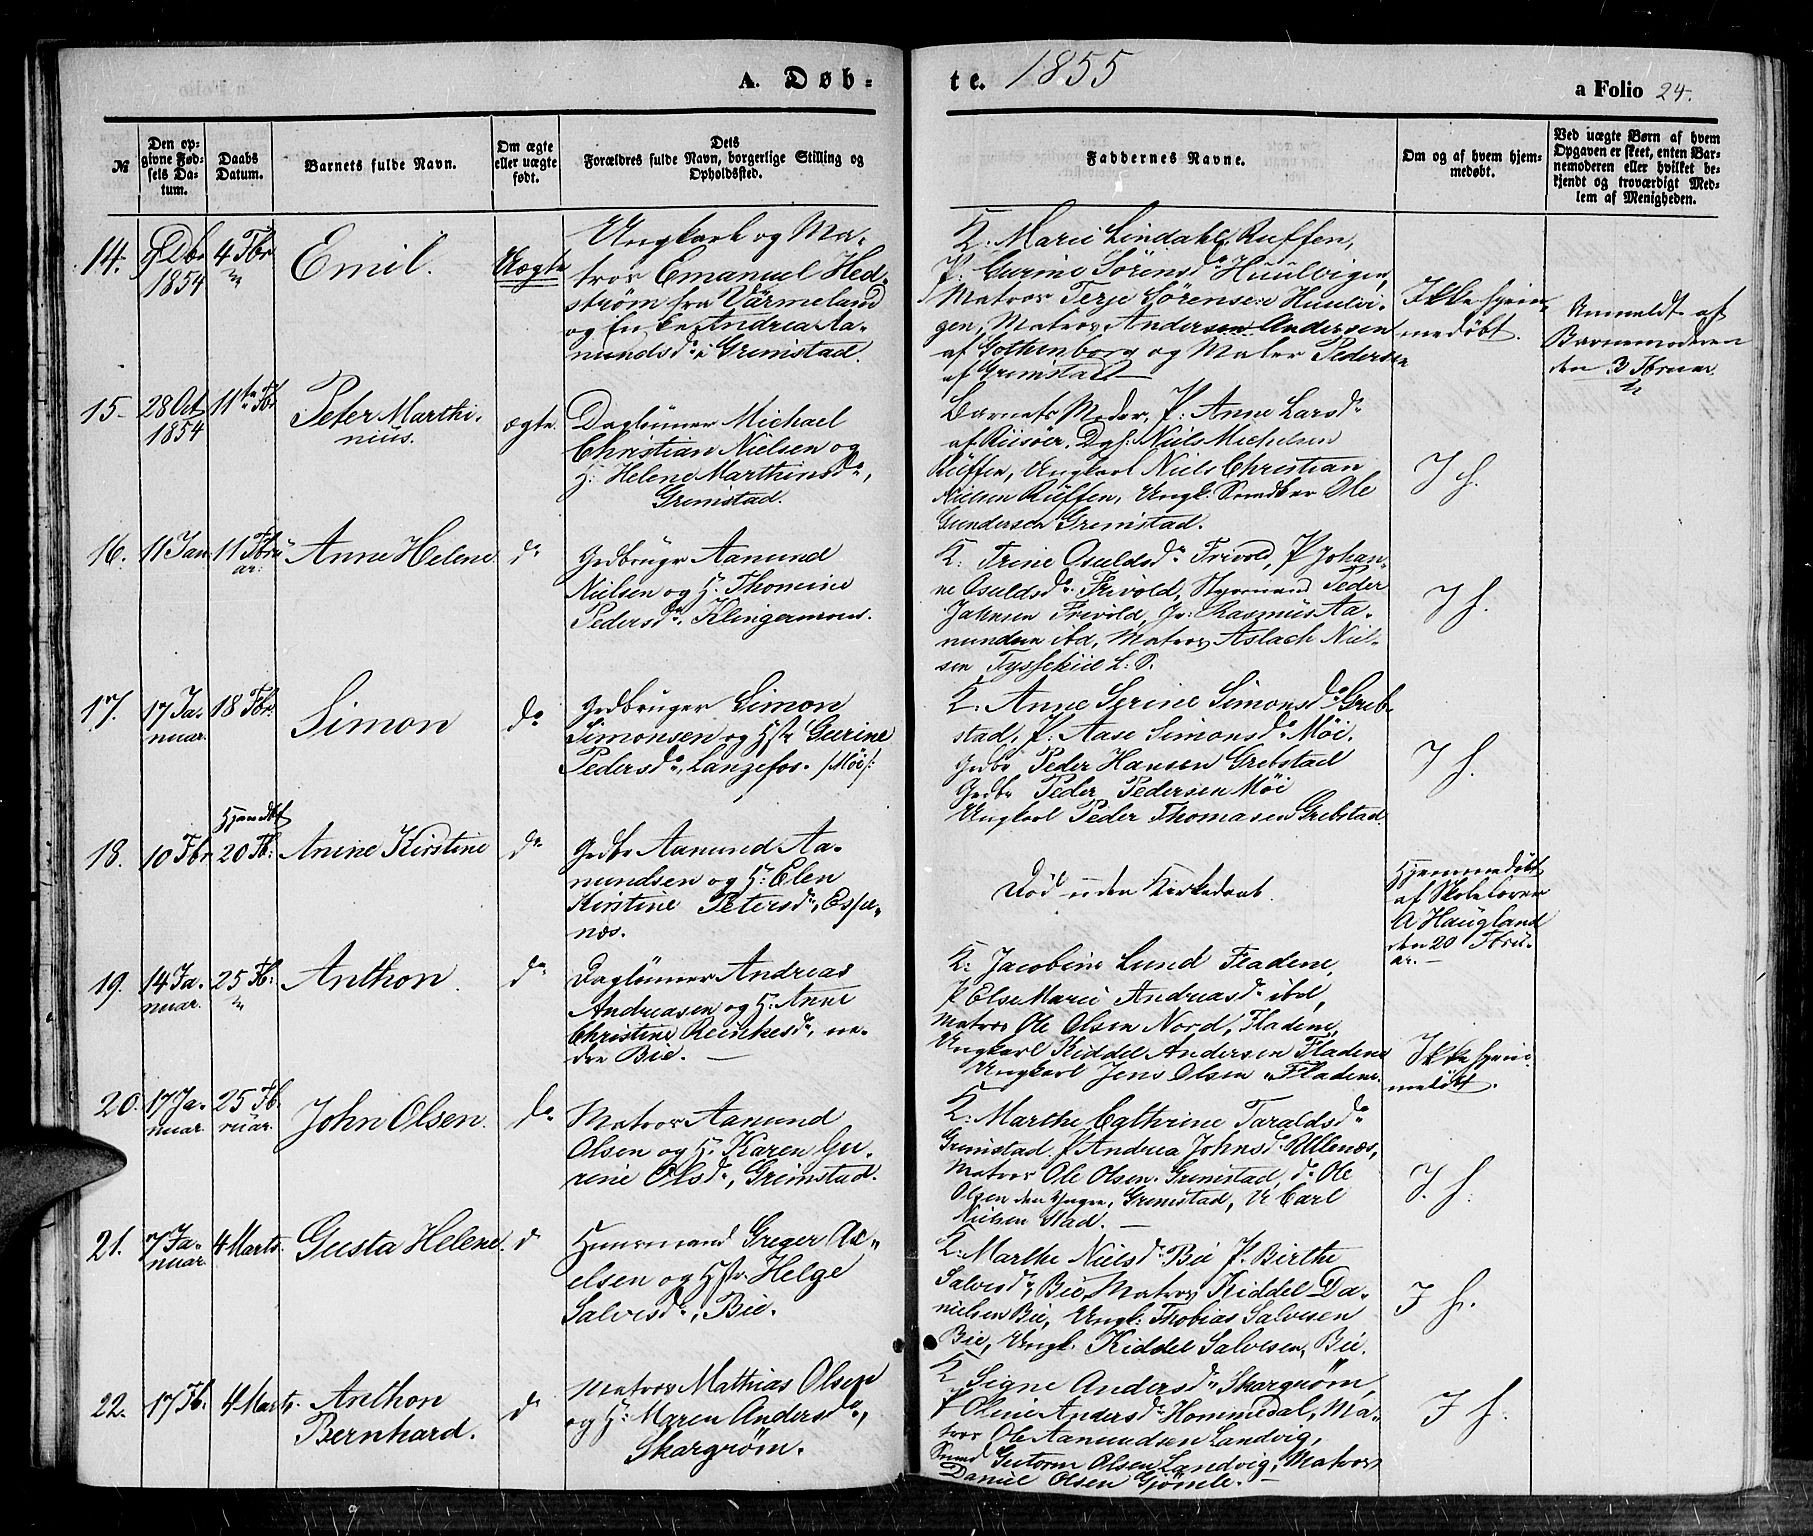 A. Døb-
te. 1855
a Folio 24.
№
Den op-
givne Fød-
sels Da-
tum.
Daabs
Datum.
Barnets fulde Navn.
Om ægte
eller uægte
født.
Dets
Forældres fulde Navn, borgerlige Stilling og
Opholdssted.
Faddernes Navne.
Om og af hvem hjem-
medøbt.
Ved uægte Børn af hvem
Opgaven er skeet, enten Bar-
nemoderen eller hvilket be-
kjendt og troværdigt Med-
lem af Menigheden.
14.
Dbr
1854
4 Fbr
Emil.
Uægte
Ungkarl og Ma-
tros Emanuel Hed-
strøm fra Värmeland
og Enke Andrea Aa-
nundsd. i Grimstad.
K. Marie Lindahl, Ruffen,
P. Gurine Sörensd. Huulvigen,
Matros Terje Sörensen Huulvi-
gen, Matros Andersen Andersen
af Gothenborg og Maler Pedersen
af Grimstad
Ikke hjem-
medøbt.
Anmeldt af
Barnemoderen
den 3 Fbruar
15.
28 Oct
1854
11te Fbr
Peter Marthi-
nius.
ægte.
Daglönner Michael
Christian Nielsen og
H. Helene Marthinsd.,
Grimstad.
Barnets Moder, P. Anne Larsd.
af Riisöer, Dgl: Niels Michelsen
Ruffen, Ungkarl Niels Christian
Nielsen Ruffen, Ungk. Snedker Ole
Gundersen Grimstad.
I h.
16.
11 Jan
11 Fbru
ar.
Anne Helene.
do
Grdbruger Aanund
Nielsen og H. Thomine
Pedersd., Klingermoen.
K. Trine Osuldsd. Frivold, P Johan-
ne Osuldsd. Frivold, Styrmand Peder
Jahnsen Frivold, Gr: Rasmus Aa-
nundsen ibd, Matros Aslach Niel-
sen Tyssekiil L. S.
I h.
17.
17 Ja-
nuar.
18 Fbr.
Simon
do
Grdbruger Simon
Simonsen og Hstr Gurine
Pedersd., Langefos. /Möi/:
K. Anne Serine Simonsd. Greb-
stad, P. Aase Simonsd. Möi.
Grdbr Peder Hansen Grebstad
Grdbr Peder Pedersen Möi
Ungkarl Peder Thomasen Grebstad.
I h.
18.
10 Fbr
Hjemdbt
20 Fb:
Anine Kirstine
do
Grdbr Aanund Aa-
nundsen og H. Elen
Kirstine Petersd., Espe-
næs.
Död uden Kirkedaab.
Hjemmedöbt
af Skolelærer
A Haugland
den 20 Fbru-
ar.
19.
14 Ja-
nuar.
25 Fb:
Anthon.
do
Daglönner Andreas
Andreasen og H. Anne
Christine Reinkesd., ne-
dre Bie.
K. Jacobine Lund Fladene,
P Else Marie Andreasd. ibd,
Matros Ole Olsen Nord, Fladene,
Ungkarl Kiddel Andersen Fladene
Ungkarl Jens Olsen Fladene.
Ikke hjem-
medöbt.
20.
17 Ja-
nuar.
25 Fb.
ruar.
John Olsen.
do
Matros Aanund
Olsen og H. Karen Gu-
rine Olsd., Grimstad.
K. Marthe Cathrine Taraldsd.
Grimstad. P Andrea Johnsd. Ullenæs,
Matros Ole Olsen Grimstad, do Ole
Olsen den Yngre, Grimstad, U Carl
Nielsen Stad.
I. h.
21.
7 Ja-
nuar.
4 Marts.
Gusta Helene.
d
Huusmand Greger Ax-
elsen og Hstr Helge
Salvesd., Bie.
K. Marthe Nielsd. Bie P. Birthe
Salvesd. Bie, Matros Kiddel Da-
nielsen Bie, Ungk: Thobias Salvesen
Bie, Ungk. Kiddel Salvesen, Bie.
I h.
22.
17 Fb.
4 Marts.
Anthon
Bernhard.
d
Matros Mathias Olsen
og H. Maren Andersd.,
Skargrøm.
K Signe Andersd. Skargrøm,
P Oline Andersd. Hommedal, Ma-
tros Ole Aanundsen Landvig,
Smed Gutorm Olsen Landvig, Matros
Daniel Olsen Gjömle.
I h.